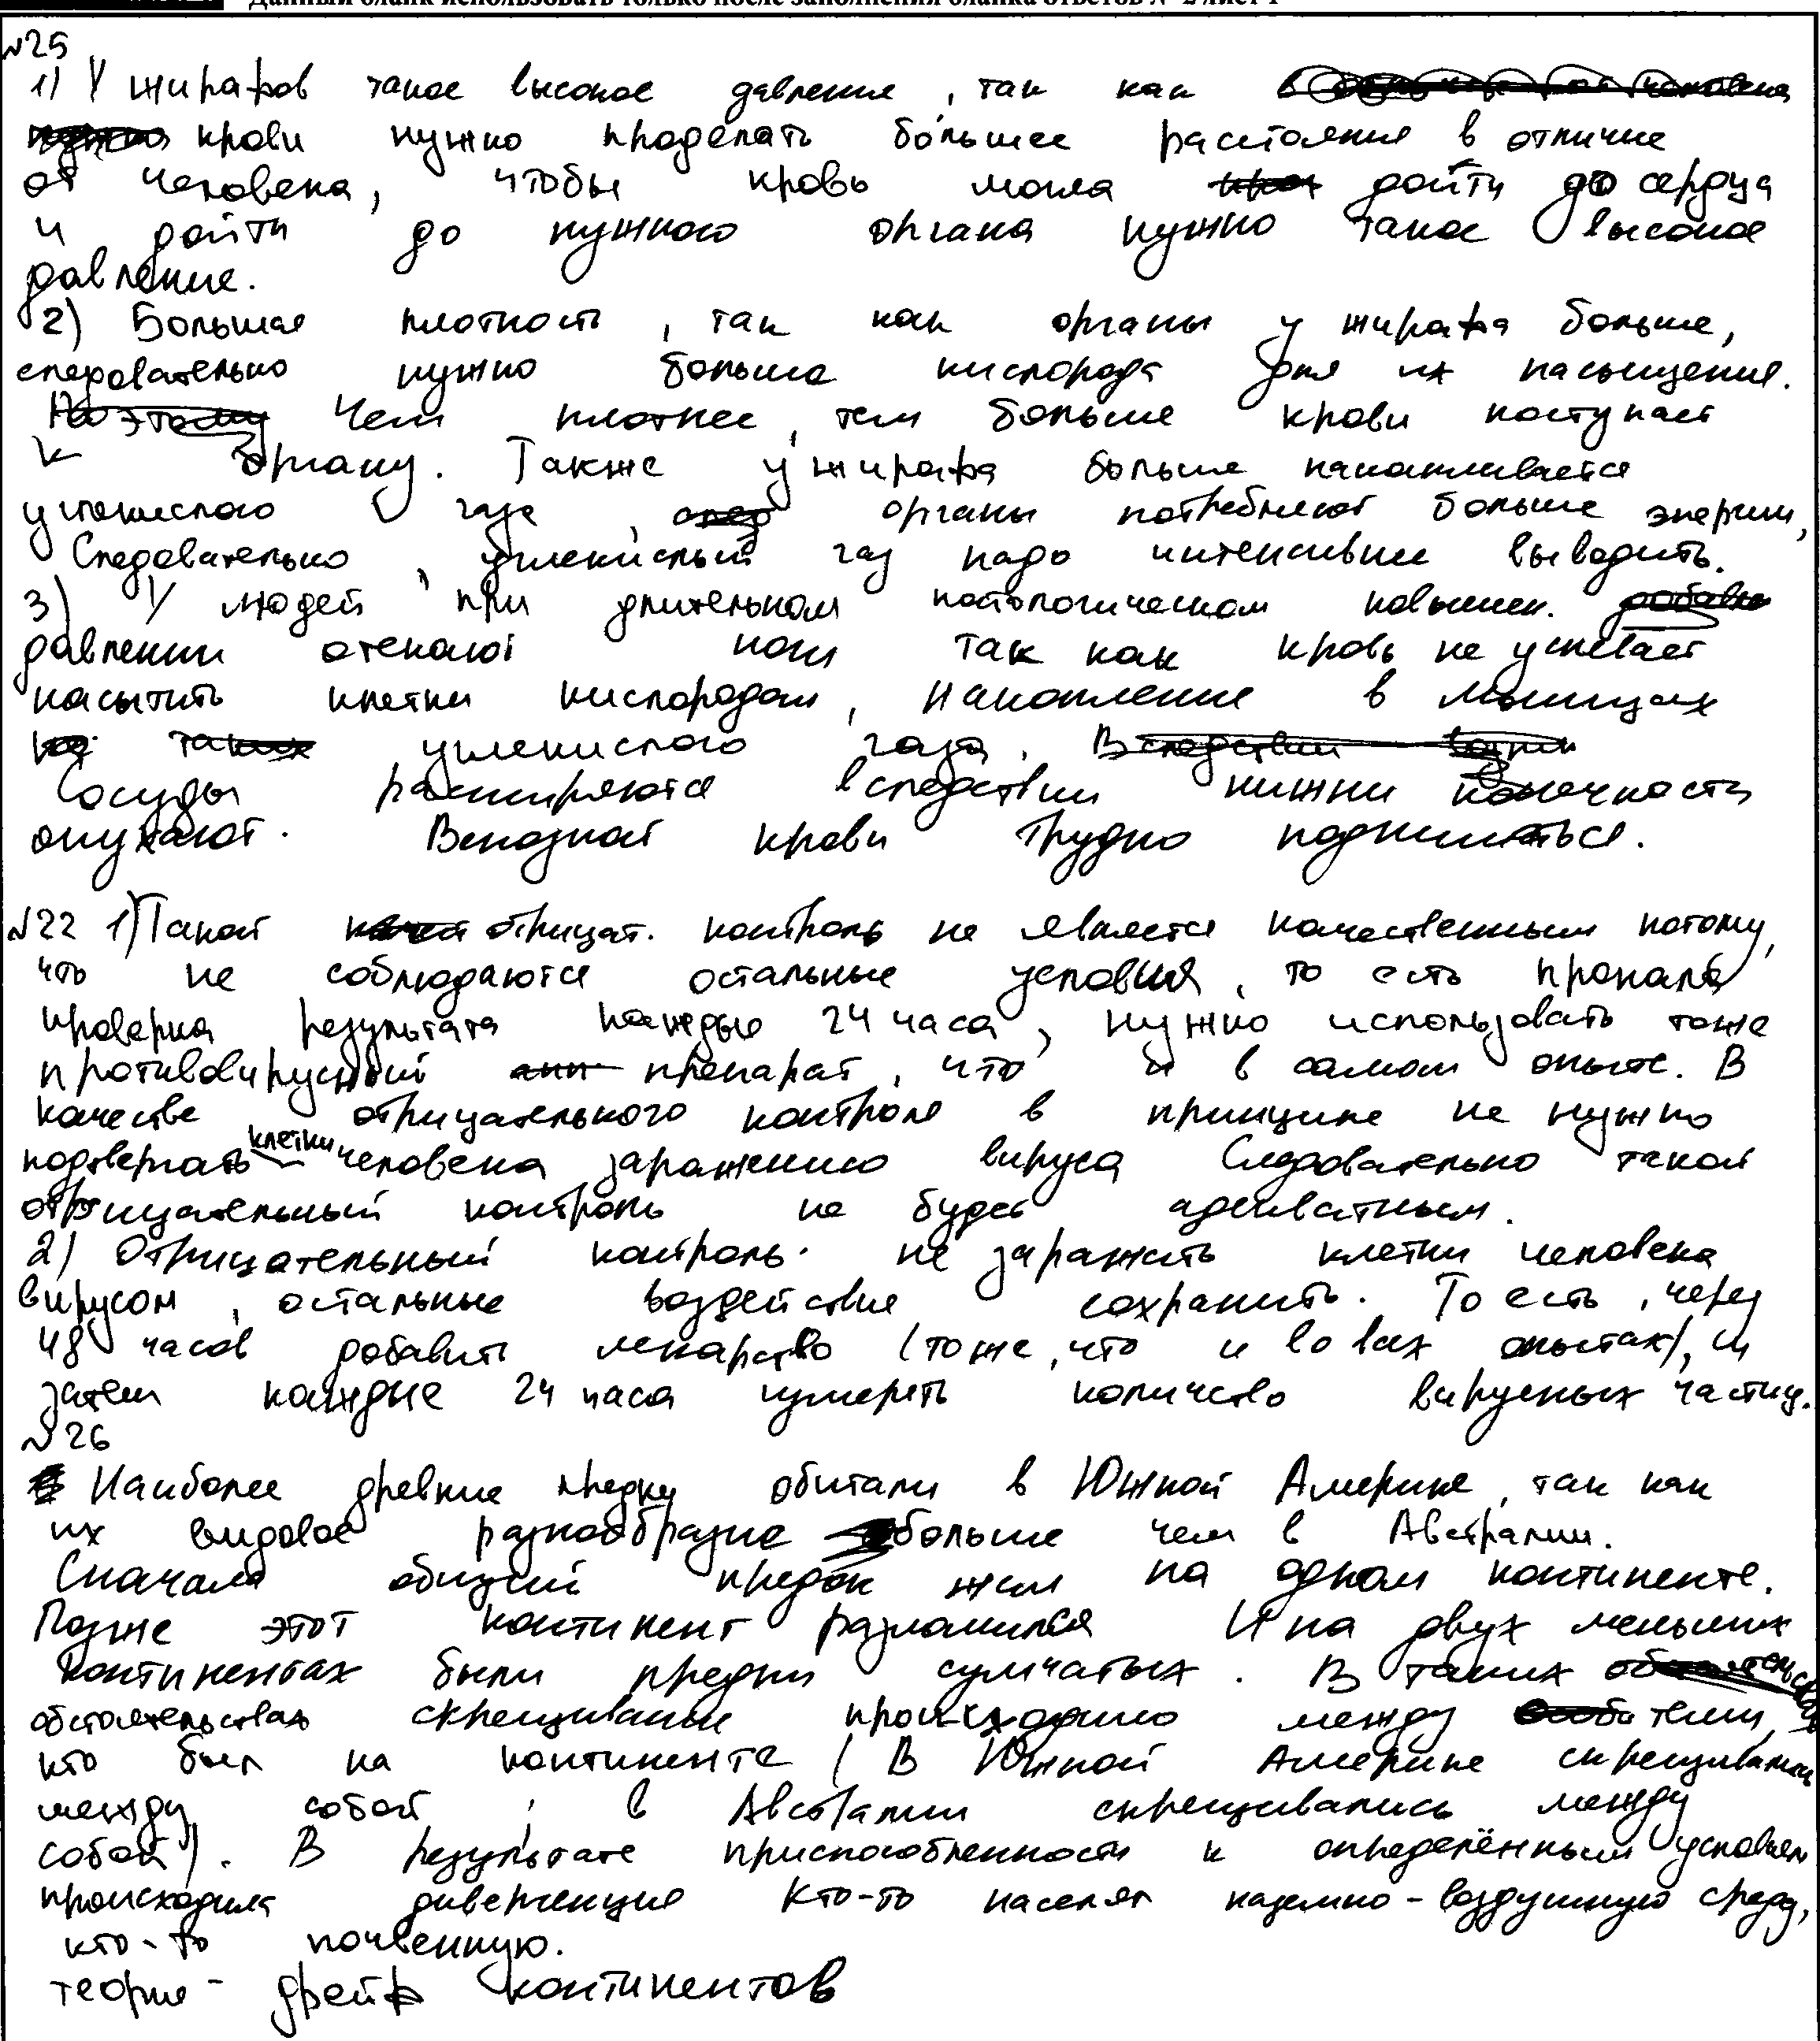 Данный бланк использовать только после заполнения бланка ответов № 2 лист 1
№25
1) У жирафов такое высокое давление, так как
крови нужно проделать большее растояния в отличие
от человека, чтобы кровь могла дойти до сердца
и дойти до нужного органа нужно такое высокое
давление.
2) Большая плотность, так как органы у жирафа больше,
следовательно нужно больше кислорода для их насыщения.
Чем плотнее, тем больше крови поступает
к органу. Также у жирафа больше накапливается
углекислого газа, органы потребляют больше энергии,
Следовательно, углекислый газ надо интенсивнее выводить.
3) У людей при длительном патологическом повышен.
давлении отекают ноги так как кровь не успевает
насытить клетки кислородом, накопление в мышцах
углекислого газа.
Сосуды расширяются вследствии нижни конечности
опухают. Венозной крови трудно подниматься.
№22 1) Такой отрицат. контроль не является качественным потому,
что не соблюдаются остальные условия, то есть пропала
проверка результата каждые 24 часа, нужно использовать тоже
противовирусный препарат, что и в самом опыте. В
качестве отрицательного контроля в принципе не нужно
подвергать клетки человека заражению вируса Следовательно такой
отрицательный контроль не будет адекватным.
2) Отрицательный контроль: не заражать клетки человека
вирусом, остальные воздействия сохранить. То есть, через
48 часов добавить лекарство (тоже, что и во всх опытах), и
затем каждые 24 часа измерять количество вирусных частиц.
№26
Наиболее древние предки обитали в Южной Америке, так как
их видовое разнообразие больше чем в Австралии.
Сначала общий предок жил на одном континенте.
Позже этот континент разломился И на двух меньших
континентах были предки сумчатых. В таких
обстоятельствах скрещивание происходило между теми,
кто был на континенте (В Южной Америке скрещивались
между собой, в Австралии скрещивались между
собой). В результате приспособленности к определённым условиям
происходила дивергенция Кто-то населял наземно-воздушную среду,
кто-то почвенную.
теория - дрейф континентов